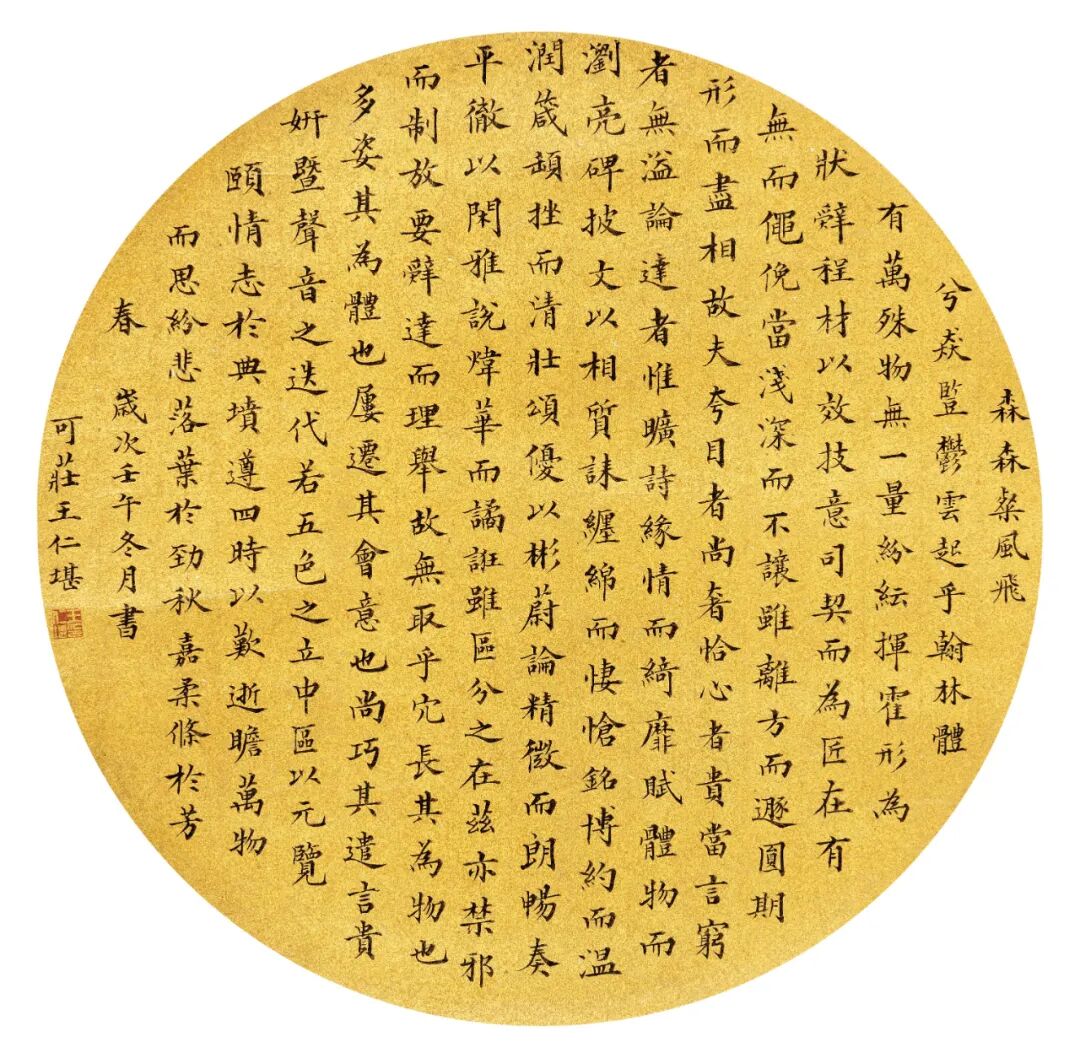 森森粲風飛
兮猋豎鬱雲起乎翰林體
有萬殊物無一量紛紜揮霍形為
狀辭程材以效技意司契而為匠在有
無而僶俛當淺深而不讓雖離方而遯圓期
形而盡相故夫夸目者尚奢恰心者貴當言窮
者無溢論達者惟曠詩緣情而綺靡賦體物而
瀏亮碑披文以相質誄纏綿而悽愴銘博約而温
潤箴頓挫而清壯頌優以彬蔚論精微而朗暢奏
平徹以閑雅說煒華而譎誑雖區分之在茲亦禁邪
而制放要辭達而理舉故無取乎冗長其為物也
多姿其為體也屢遷其會意也尚巧其遣言貴
妍暨聲音之迭代若五色之立中區以元覽
頤情志於典墳遵四時以歎逝瞻萬物
而思紛悲落葉於勁秋嘉柔條於芳
春 歲次壬午冬月書
可莊王仁堪